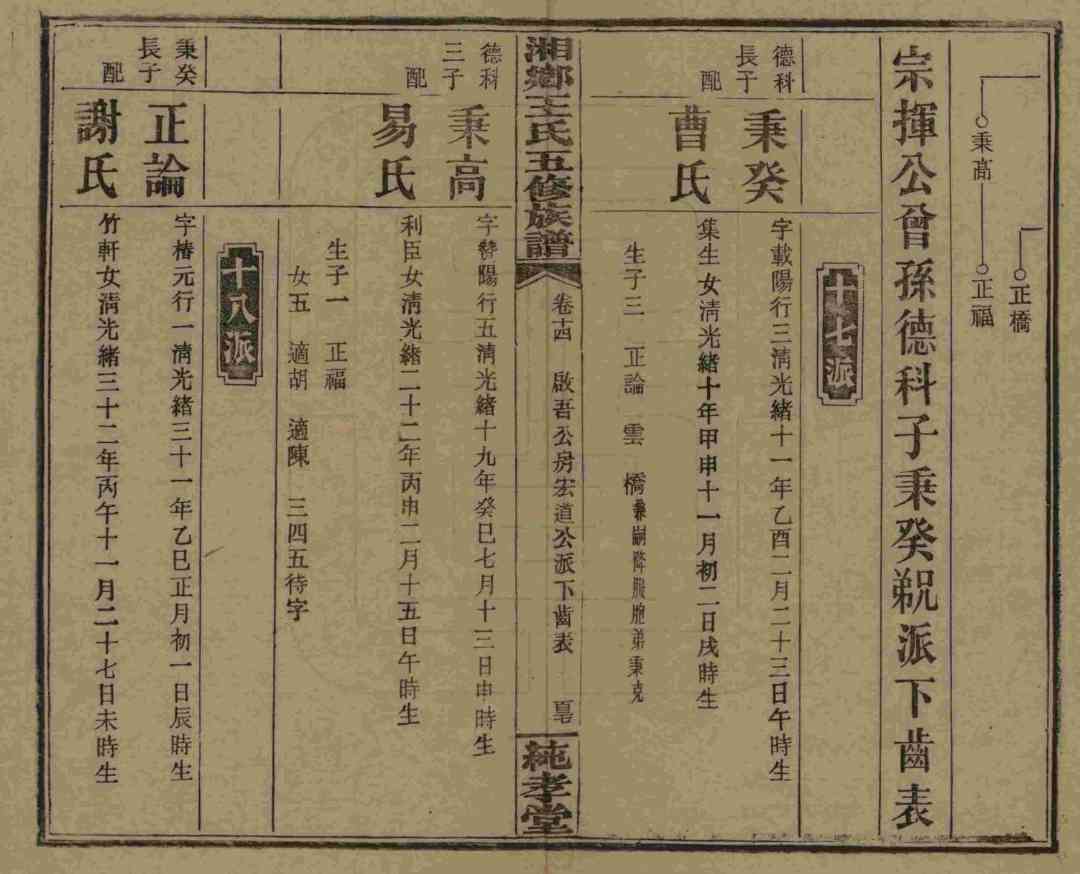 正橋
秉高 正福
宗揮公曾孫德科子秉癸覡派下齒表
十七派
德科
長子
秉癸
字載陽行三淸光緒十一年乙酉二月二十三日午時生
配
曹氏
集生女淸光緒十年甲申十一月初二日戌時生
生子三 正論 雲 橋兼嗣降服胞弟秉克
湘鄉王氏五修族譜
卷十四 啟吾公房宏道公派下齒表
純孝堂
德科
三子
秉高
字贊陽行五淸光緒十九年癸巳七月十三日申時生
配
易氏
利臣女淸光緒二十二年丙申二月十五日午時生
生子一 正福
女五 適胡 適陳 三四五待字
十八派
秉癸
長子
正論
字椿元行一淸光緒三十一年乙巳正月初一日辰時生
配
謝氏
竹軒女淸光緒三十二年丙午十一月二十七日未時生